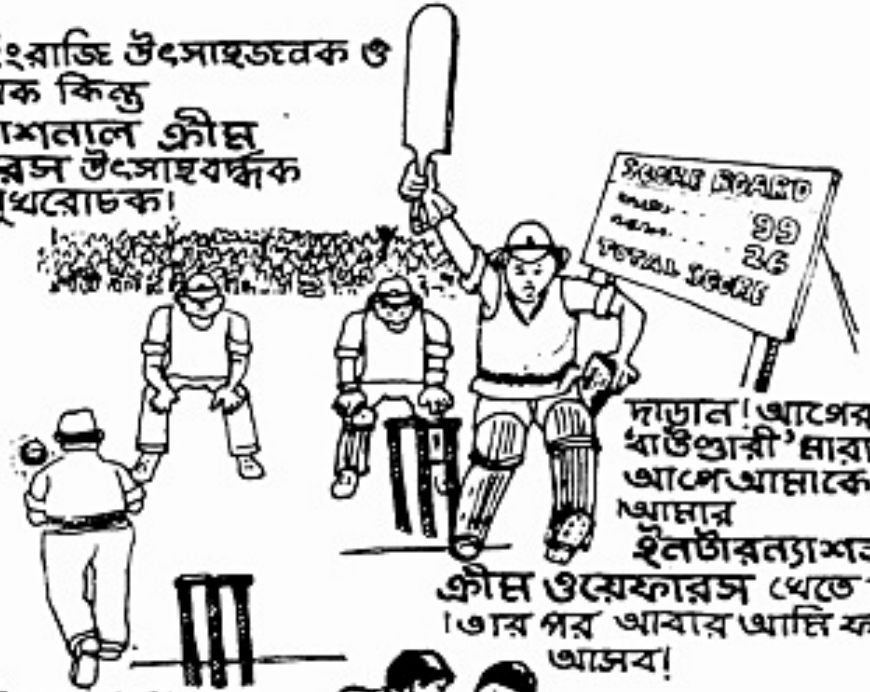 ংরাজি উৎসাহজনক ও
ক কিন্তু
াশনাল ক্রীম
রস উৎসাহবর্দ্ধক
মুখরোচক!
SCORE BOARD
99
26
TOTAL SCORE
দাড়ান! আগের
'বাউণ্ডারী' মারা
আগে আমাকে
আমার
ইনটারন্যাশন
ক্রীম ওয়েফারস খেতে
তার পর আবার আমি
আসব!